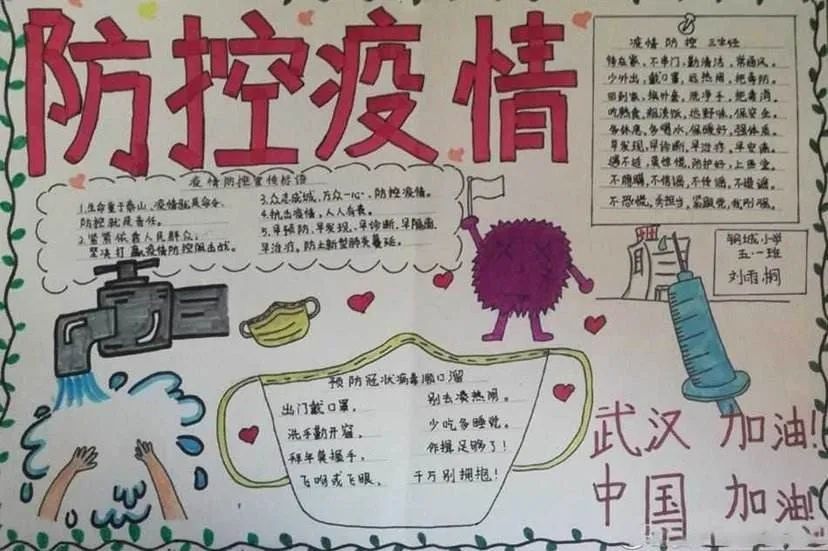 防控疫情
疫情防控三字经
待在家，不串门，勤清洁，常通风。
少外出，戴口罩，远热闹，把毒防。
回到家，换外套，洗净手，把毒消。
吃熟食，粗淡饭，远野味，保安全。
多休息，多喝水，保暖好，强体质。
早发现，早诊断，早治疗，早空痛。
遇不适，莫惊慌，防护好，上医堂。
不隐瞒，不信谣，不传谣，不造谣。
不恐慌，勇担当，紧跟党，我刚强。
疫情防控宣传标语
1.生命重于泰山、疫情就是命令、
防控就是责任。
2.紧紧依靠人民群众，
坚决打赢疫情防控阻击战。
3.众志成城，万众一心、防控疫情。
4.抗击疫情，人人有责。
5.早预防、早发现、早诊断、早隔离、
早治疗，防止新型肺炎蔓延。
钢城小学
五·一班
刘雨桐
预防冠状病毒顺口溜
出门戴口罩，
别去凑热闹。
洗手勤开窗，
少吃多睡觉。
拜年莫握手，
作揖足够了！
飞吻或飞眼，
千万别拥抱！
武汉 加油！
中国 加油！